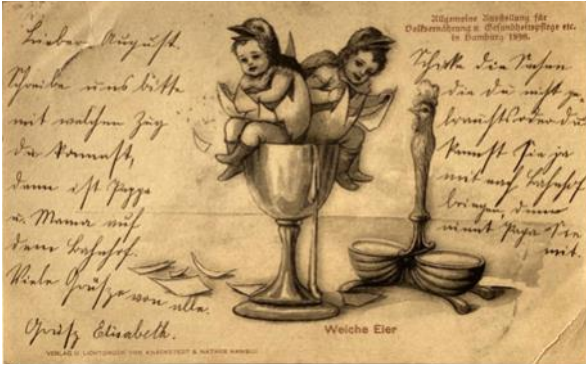 Allgemeine Ausstellung für
Volksernährung u. Gesundheitspflege etc.
in Hamburg 1898.
Lieber August.
Schreibe uns bitte
mit welchen Zug
du kommst,
dann ist Pappa
u. Mama auf
dem Bahnhof.
Viele Grüße von alle.
Gruß Elisabeth.
Schicke die Sachen
die du nicht ge-
brauchst oder du
kannst Sie ja
mit nach Bahnhof
bringen, dann
nimt Papa Sie
mit.
Weiche Eier
VERLAG U. LICHTDRUCK VON KNACKSTEDT & NÄTHER HAMBURG